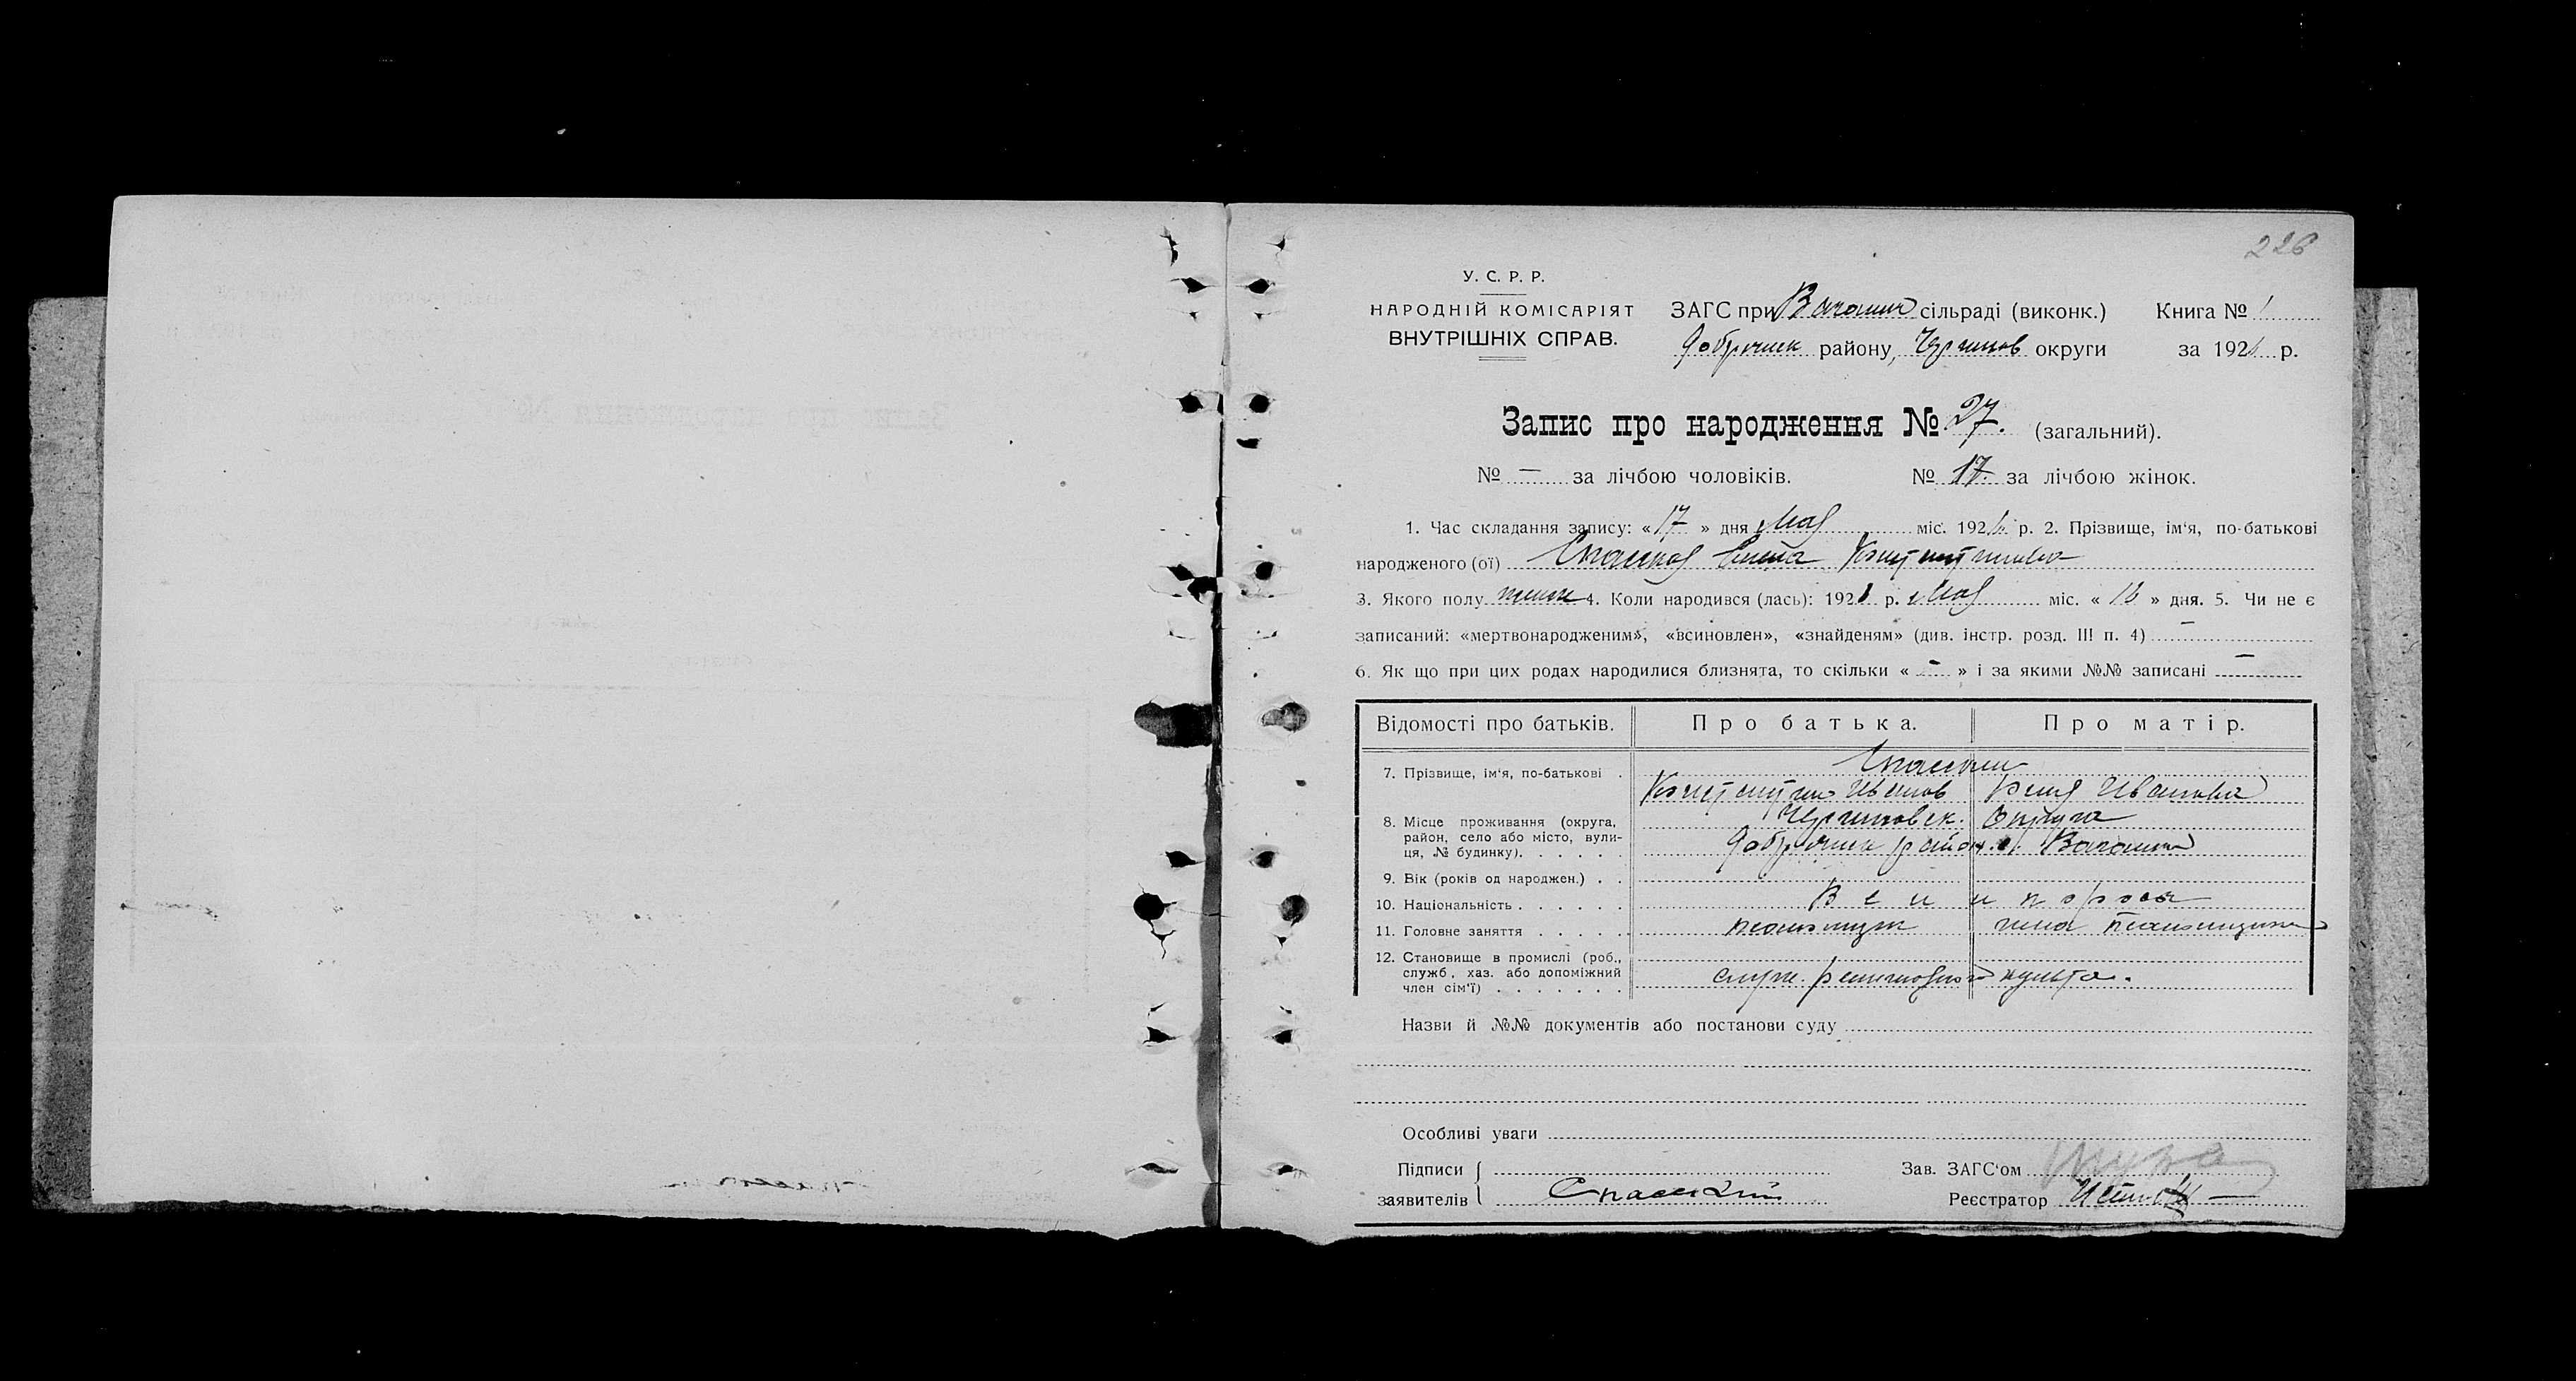 226
У. С. Р. Р.
НАРОДНІЙ КОМІСАРІЯТ
ВНУТРІШНІХ СПРАВ.
ЗАГС при Ваганич сільраді (виконк.) Книга № 1
Добрянск району, округи за 192 р.
Запис про народження № 27. (загальний).
№ — за лічбою чоловіків. № 17. за лічбою жінок.
1. Час складання запису: «17» дня Мая міс. 192 р. 2. Прізвище, ім'я, по-батькові
народженого (ої) Константиновна
3. Якого полу женск 4. Коли народився (лась): 192 р. Мая міс. «16» дня. 5. Чи не є
записаний: «мертвонародженим», «всиновлен», «знайденям» (див. інстр. розд. III п. 4) —
6. Як що при цих родах народилися близнята, то скільки « — » і за якими №№ записані —
Відомості про батьків. Про батька. Про матір.
7. Прізвище, ім'я, по-батькові .
Константин Иванов Ивановна
8. Місце проживання (округа, район, село або місто, вулиця, № будинку). . . . . . Округа
район. с.
9. Вік (років од народжен.) . .
10. Національність . . . . . . Великоросы
11. Головне заняття . . . . . псаломщик жена псаломщика
12. Становище в промислі (роб., служб, хаз. або допоміжний член сім'ї) . . . . . . . служ. религиозного культа.
Назви й №№ документів або постанови суду
Особливі уваги
Підписи
заявителів Спасский
Зав. ЗАГС'ом
Реєстратор